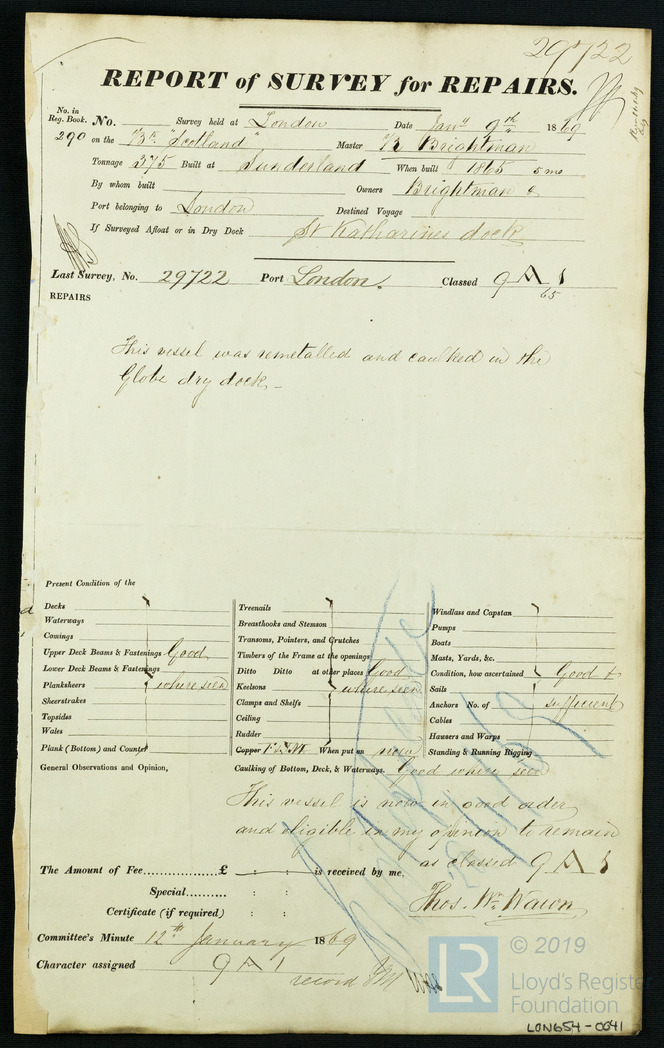 29722
REPORT of SURVEY for REPAIRS.
No. in Reg. Book. No. Survey held at London Date Jany 9th 1869
290 on the Bk "Scotland" Master B Brightman
Tonnage 375 Built at Sunderland When built 1865 5 mo
By whom built Owners Brightman &
Port belonging to London Destined Voyage
If Surveyed Afloat or in Dry Dock St Katharines dock
Last Survey, No. 29722 Port London. Classed 9 A 1
65
REPAIRS
This vessel was remetalled and caulked in the
Globe dry dock
Present Condition of the
Decks
Waterways
Comings
Upper Deck Beams & Fastenings Good
Lower Deck Beams & Fastenings
Planksheers where seen
Sheerstrakes
Topsides
Wales
Plank (Bottom) and Counter
Treenails
Breasthooks and Stemson
Transoms, Pointers, and Crutches
Timbers of the Frame at the openings
Ditto Ditto at other places Good
Keelsons where seen
Clamps and Shelfs
Ceiling
Rudder
Copper F & M When put on new
Windlass and Capstan
Pumps
Boats
Masts, Yards, &c.
Condition, how ascertained Good &
Sails
Anchors No. of sufficient
Cables
Hawsers and Warps
Standing & Running Rigging
General Observations and Opinion, Caulking of Bottom, Deck, & Waterways. Good when seen
This vessel is now in good order
and eligible in my opinion to remain
as classed 9 A 1
The Amount of Fee............... £ : : is received by me,
Special........... : :
Thos. Wm. Wawn
Certificate (if required) : :
Committee's Minute 12th January 1869
Character assigned 9 A 1
record
LR
© 2019
Lloyd's Register
Foundation
LON654-0041